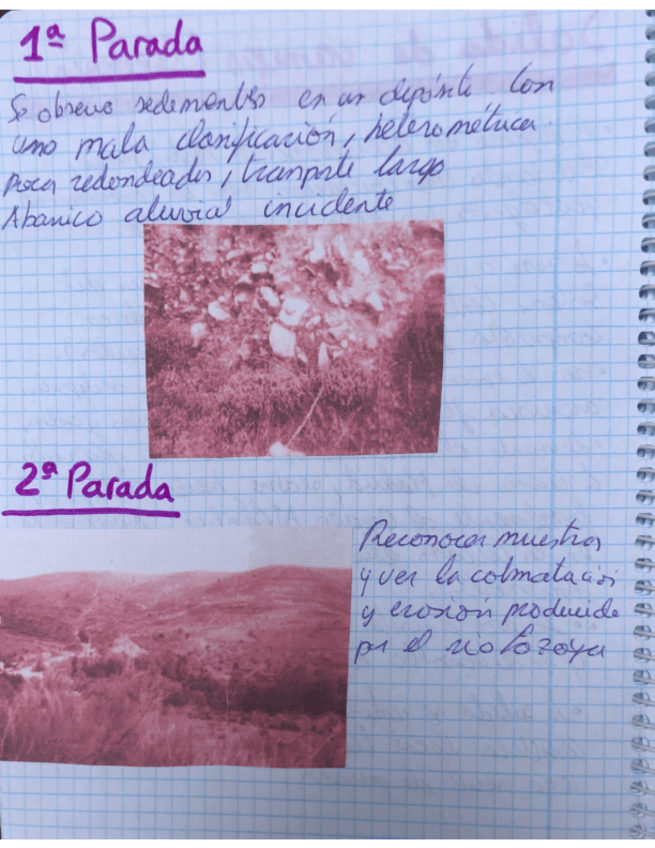 1ª Parada
Se observa sedementos en un depósito con
una mala clasificación, heterométrica
poca redondeados, tranporte largo
Abanico aluvial incidente
2ª Parada
Reconocer muestras
y ver la colmatación
y erosión producida
por el rio Lozoya